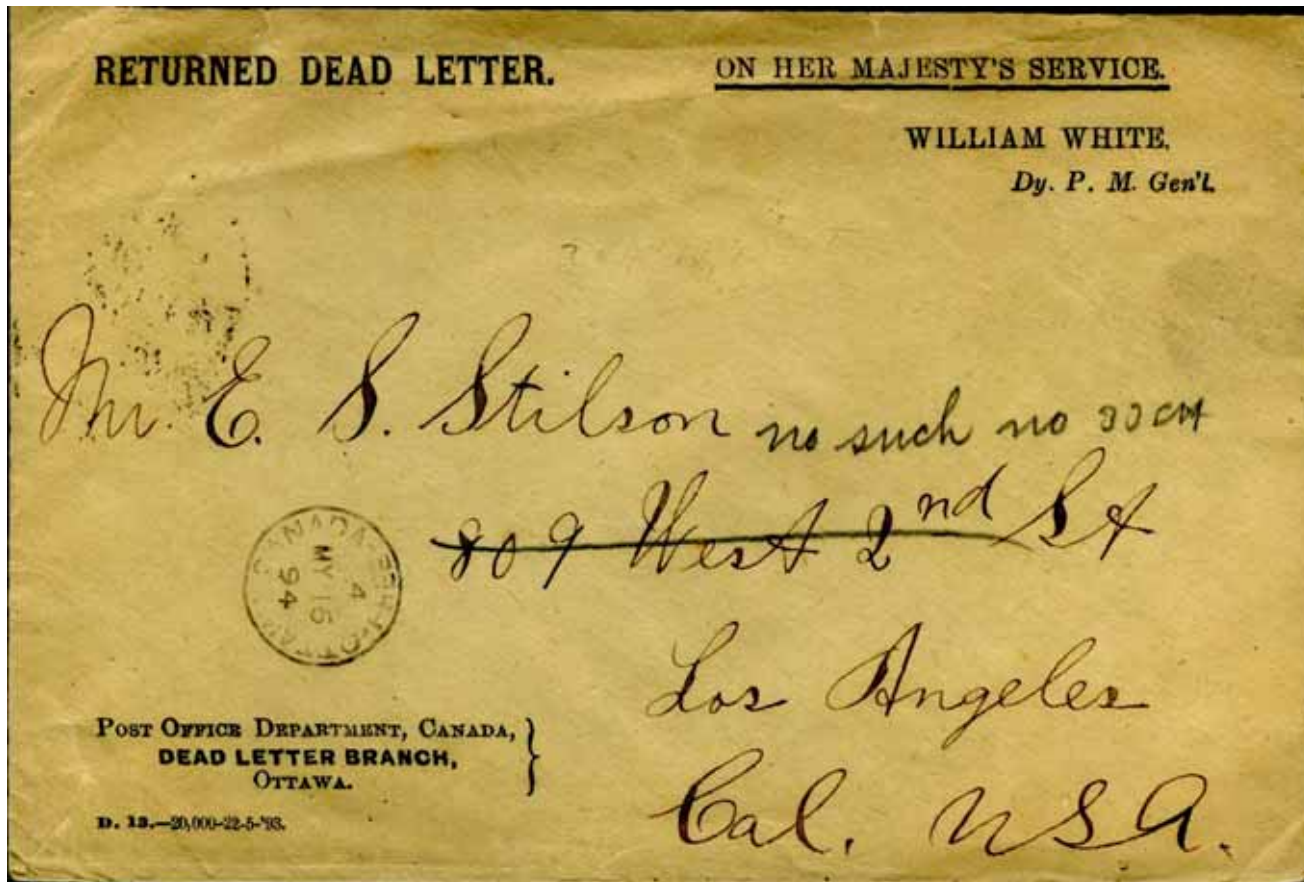 RETURNED DEAD LETTER.
ON HER MAJESTY'S SERVICE.
WILLIAM WHITE,
Dy. P. M. Gen'l.
Mr. E. S. Stilson no such no
809 West 2nd St
Los Angeles
Cal. USA.
CANADA
4
MY 16
94
POST OFFICE DEPARTMENT, CANADA,
DEAD LETTER BRANCH,
OTTAWA.
D. 13.—20,000-22-5-'93.